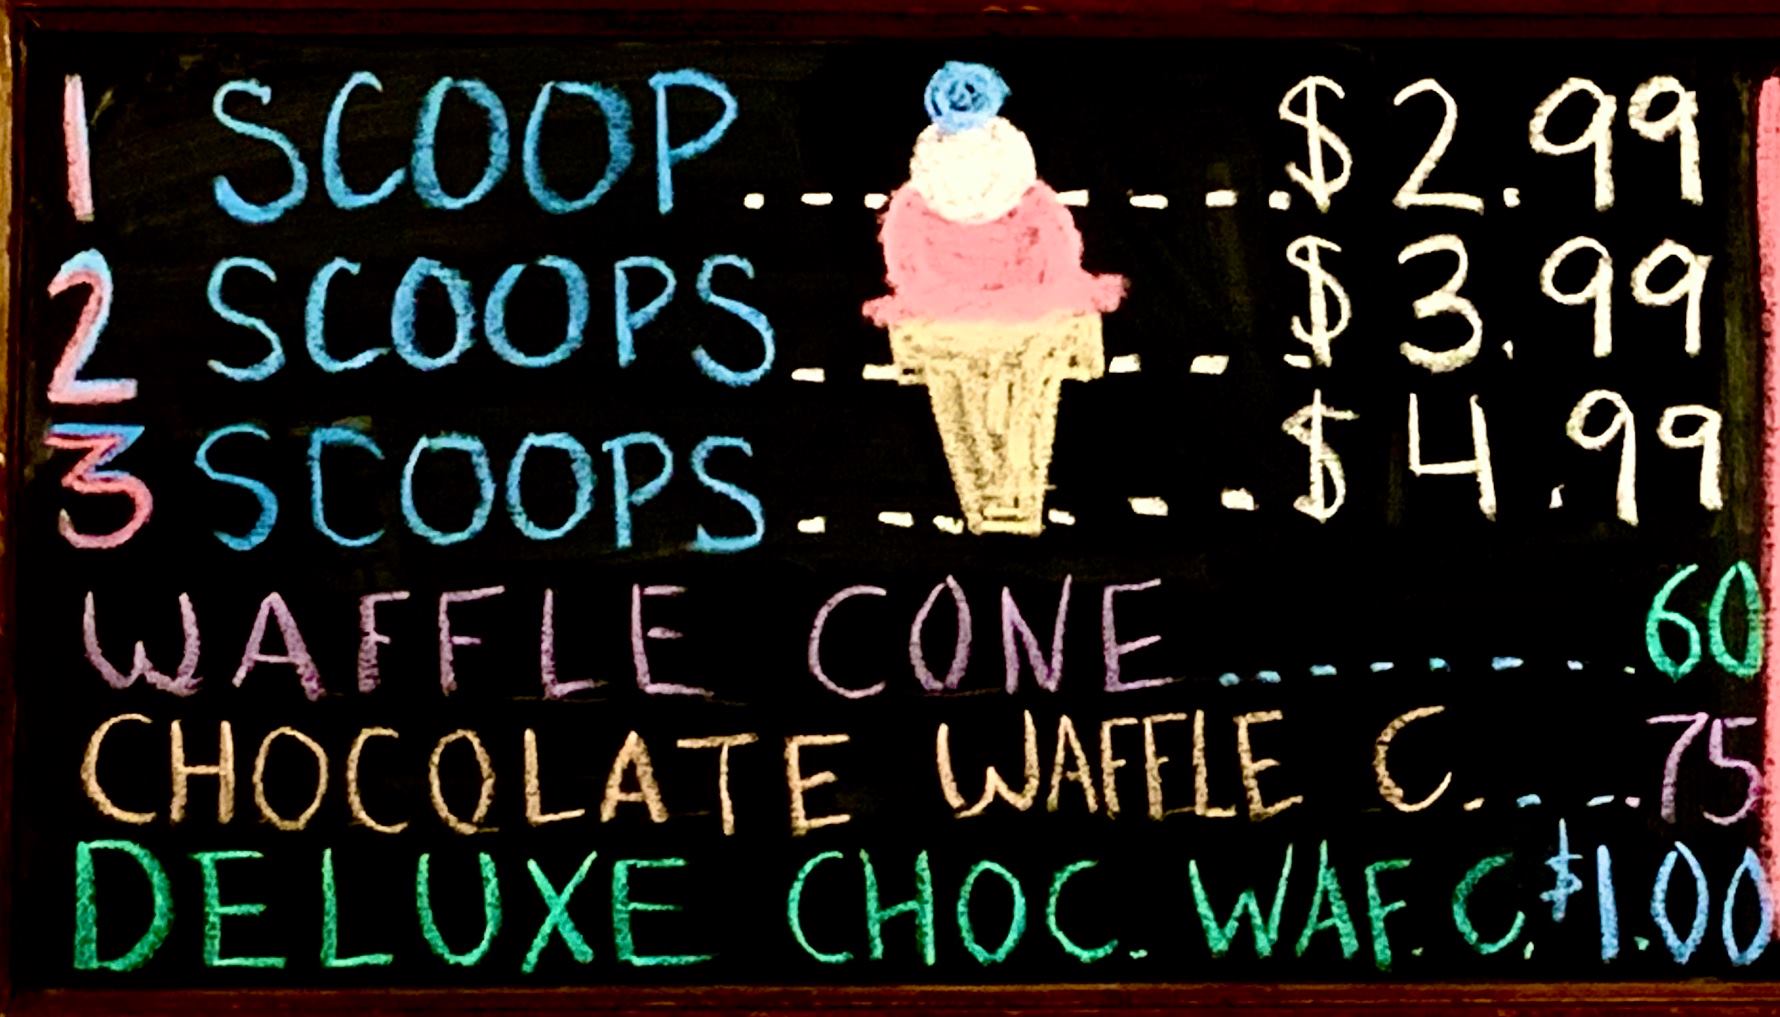 1 SCOOP $2.99
2 SCOOPS $3.99
3 SCOOPS $4.99
WAFFLE CONE 60
CHOCOLATE WAFFLE C. 75
DELUXE CHOC. WAF. C. $1.00